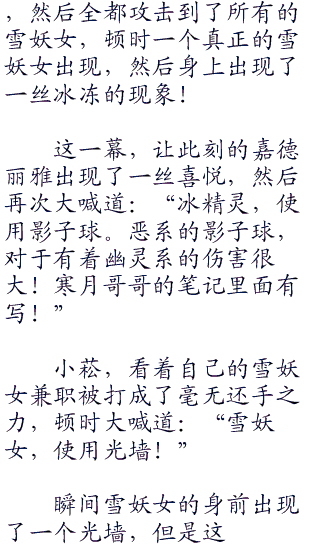 ，然后全都攻击到了所有的
雪妖女，顿时一个真正的雪
妖女出现，然后身上出现了
一丝冰冻的现象！
这一幕，让此刻的嘉德
丽雅出现了一丝喜悦，然后
再次大喊道：“冰精灵，使
用影子球。恶系的影子球，
对于有着幽灵系的伤害很
大！寒月哥哥的笔记里面有
写！”
小菘，看着自己的雪妖
女兼职被打成了毫无还手之
力，顿时大喊道：“雪妖
女，使用光墙！”
瞬间雪妖女的身前出现
了一个光墙，但是这